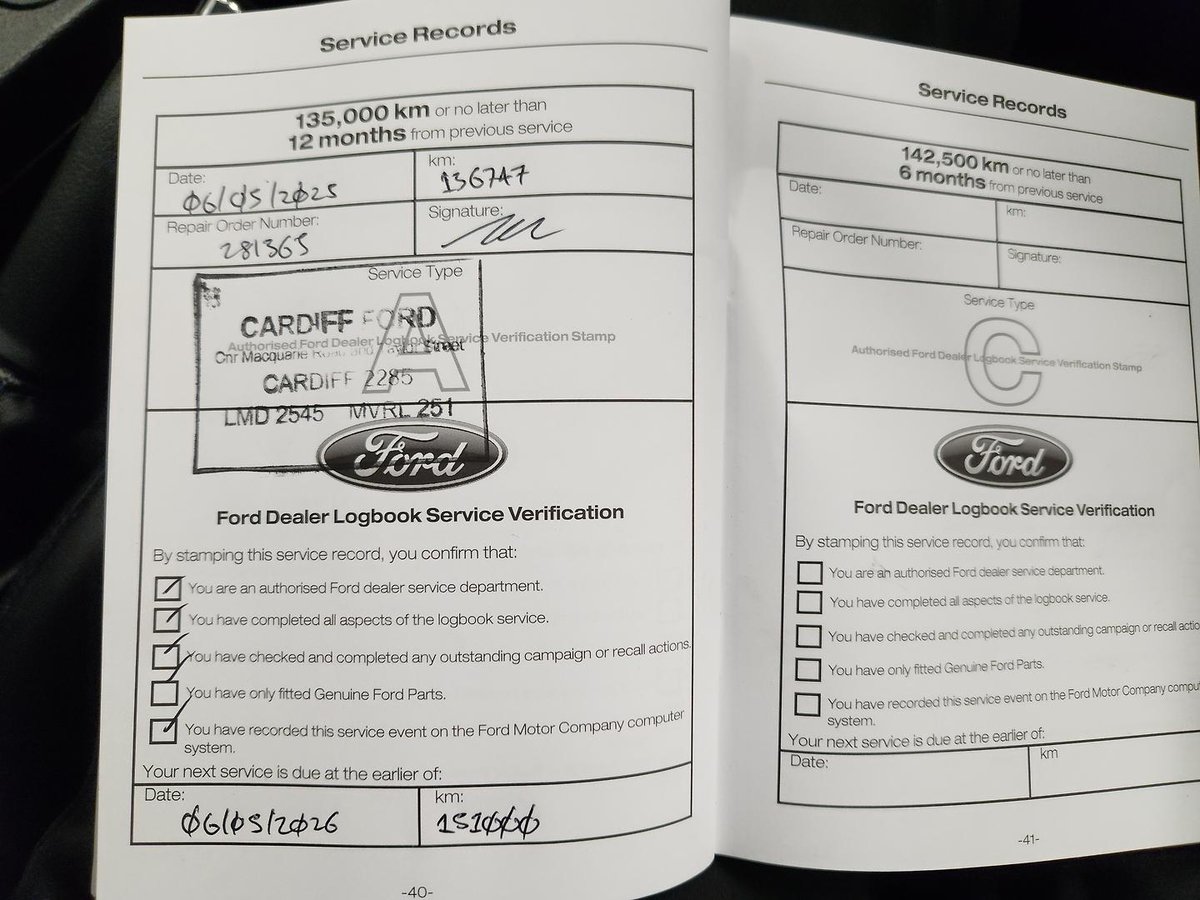 Service Records
135,000 km or no later than
12 months from previous service
Date:
06/05/2025
km:
136747
Repair Order Number:
281365
Signature:
Service Type
A
Authorised Ford Dealer Logbook Service Verification Stamp
CARDIFF FORD
Cnr Macquarie Road and Street
CARDIFF 2285
LMD 2545 MVRL 251
Ford
Ford Dealer Logbook Service Verification
By stamping this service record, you confirm that:
You are an authorised Ford dealer service department.
You have completed all aspects of the logbook service.
You have checked and completed any outstanding campaign or recall actions.
You have only fitted Genuine Ford Parts.
You have recorded this service event on the Ford Motor Company computer
system.
Your next service is due at the earlier of:
Date:
06/05/2026
km:
151000
-40-
Service Records
142,500 km or no later than
6 months from previous service
Date:
km:
Repair Order Number:
Signature:
Service Type
C
Authorised Ford Dealer Logbook Service Verification Stamp
Ford
Ford Dealer Logbook Service Verification
By stamping this service record, you confirm that:
You are an authorised Ford dealer service department.
You have completed all aspects of the logbook service.
You have checked and completed any outstanding campaign or recall actio
You have only fitted Genuine Ford Parts.
You have recorded this service event on the Ford Motor Company compu
system.
Your next service is due at the earlier of:
Date:
km
-41-